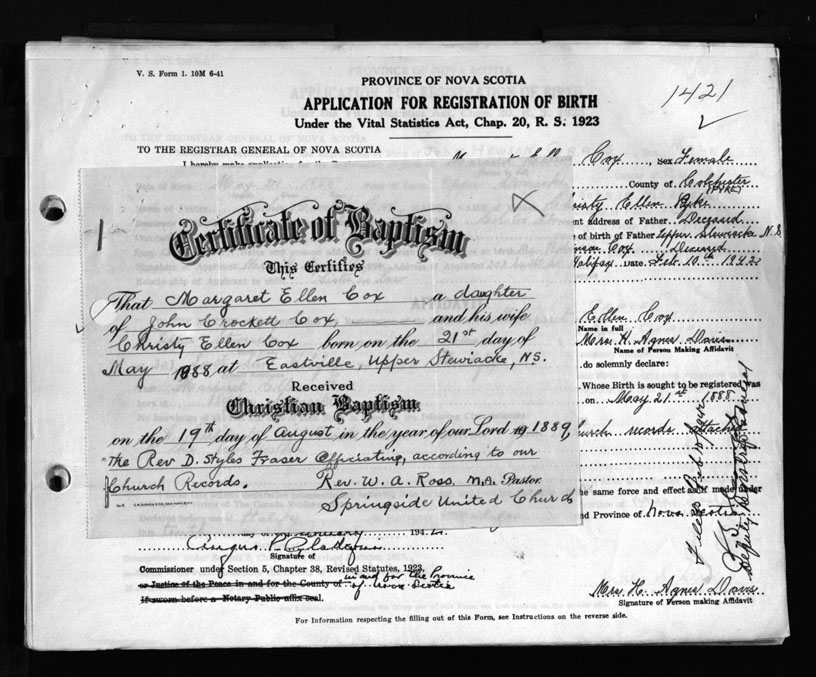 V. S. Form 1. 10M 6-41
PROVINCE OF NOVA SCOTIA
1421
APPLICATION FOR REGISTRATION OF BIRTH
Under the Vital Statistics Act, Chap. 20, R. S. 1923
TO THE REGISTRAR GENERAL OF NOVA SCOTIA
I hereby make application for the
Cox, Sex Female
County of Colchester
(PYKE)
Ellen Pyke
address of Father. Deceased
of birth of Father Upper Stewiacke N.S
Cox. Deceased
Halifax. Date. Feb. 10th 1942
1
Certificate of Baptism
This Certifies
That Margaret Ellen Cox a daughter
of John Crockett Cox, and his wife
Christy Ellen Cox born on the 21st day of
May 1888 at Eastville, Upper Stewiacke, N.S.
Received
Christian Baptism
on the 19th day of August in the year of our Lord 19 1889,
the Rev D. Styles Fraser officiating, according to our
Church Records. Rev. W. A. Ross, M.A. Pastor.
Springside United Church
Ellen Cox
Name in full
Mrs. H. Agnes Davis
Name of Person Making Affidavit
do solemnly declare:
Whose Birth is sought to be registered was
on May 21st 1888
Church records attached
the same force and effect as if made under
and Province of Nova Scotia
Deputy Registrar General
194
Angus
Signature of
Commissioner under Section 5, Chapter 38, Revised Statutes, 1923,
or Justice of the Peace in and for the County of in and for the Province
of Nova Scotia
If sworn before a Notary Public affix seal.
Mrs. H. Agnes Davis
Signature of Person making Affidavit
For Information respecting the filling out of this Form, see Instructions on the reverse side.